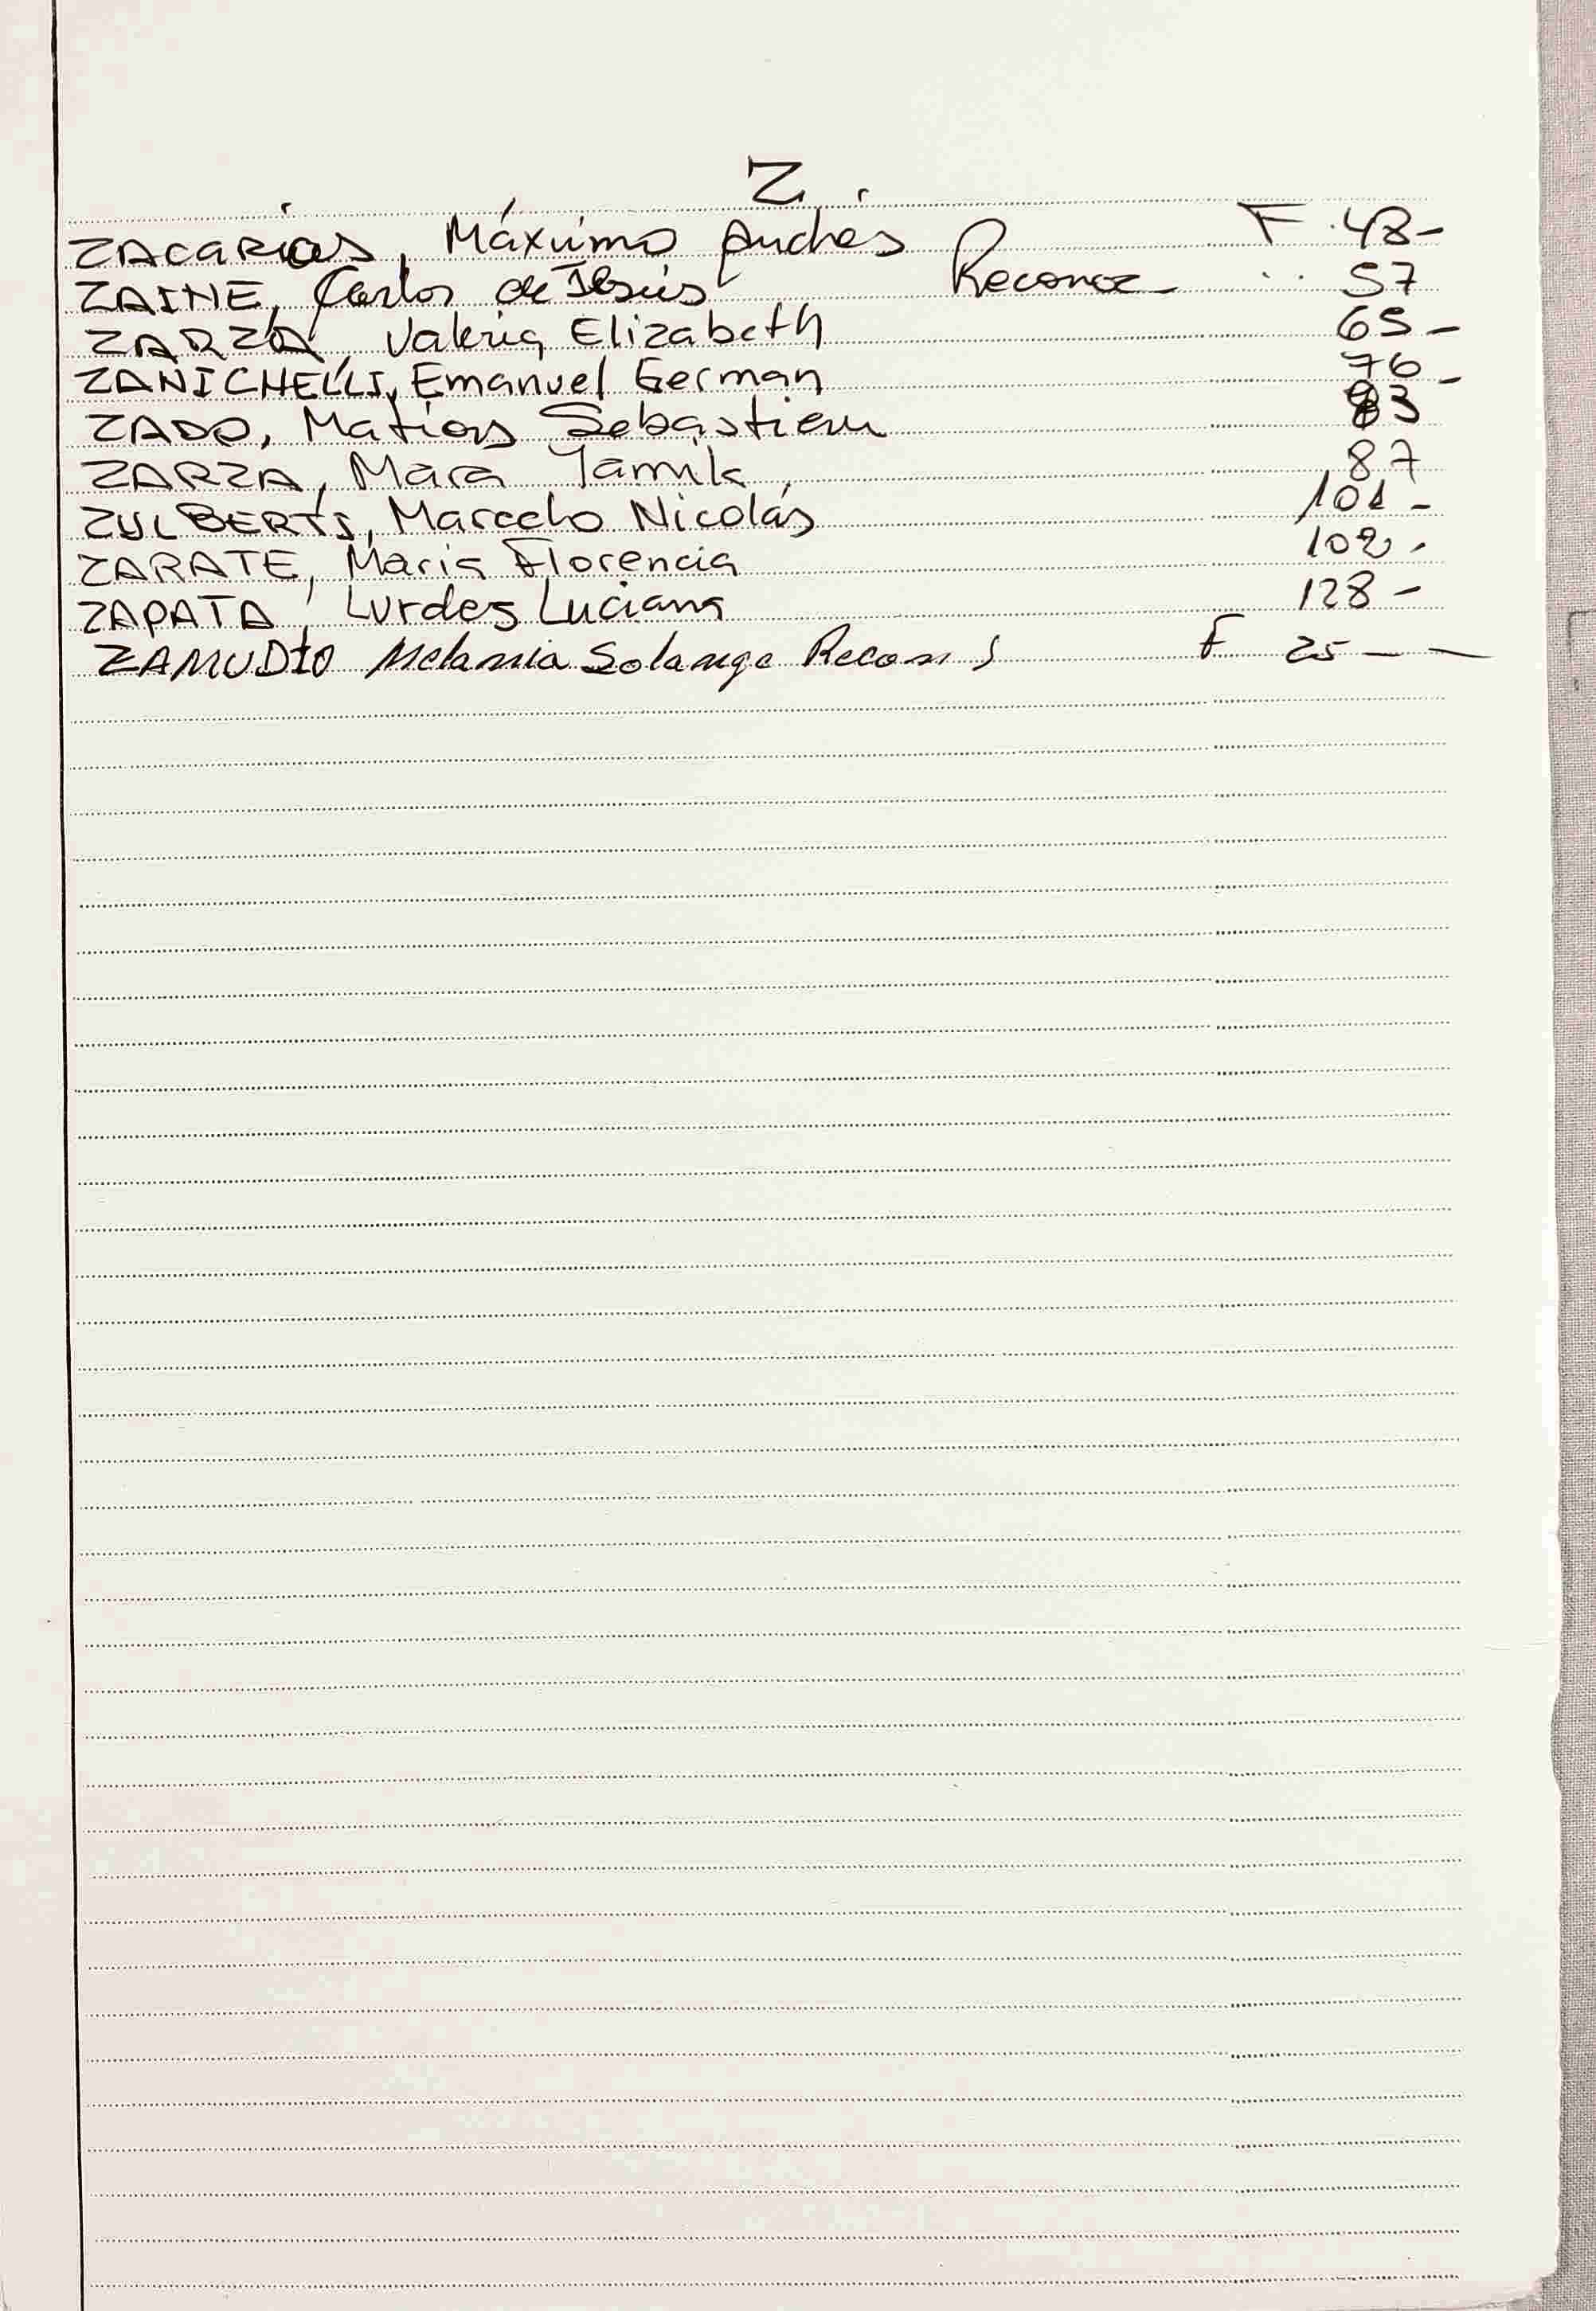 Z
ZACARÍAS, Máximo Andrés F. 48-
ZAINE, Carlos de Jesús Reconoc- " 57
ZARZA, Valeria Elizabeth 65-
ZANICHELLI, Emanuel German 76
ZADO, Matías Sebastian 83
ZARZA, Mara Yamila 87
ZYLBERTI, Marcelo Nicolás 101-
ZARATE, María Florencia 102-
ZAPATA, Lurdes Luciana 128-
ZAMUDIO Melania Solange F 25--